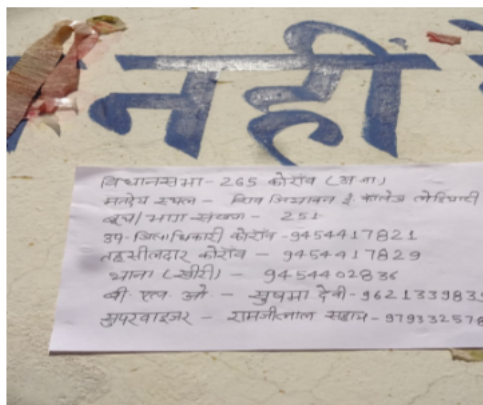 नहीं
विधानसभा - 265 कोरॉव (अ.जा.)
मतदेय स्थल - शिव जियावन इं कालेज
बूथ/भाग संख्या - 251
उप जिलाधिकारी कोरॉव - 9454417821
तहसीलदार कोरॉव - 9454417829
थाना (खीरी) - 9454402836
बी. एल. ओ. - सुषमा देवी - 962133983
सुपरवाइजर - रामजीलाल - 979332578